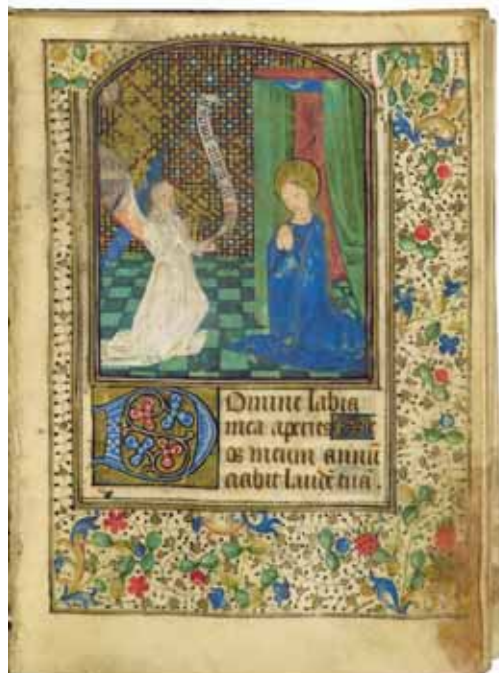 Domine labia
mea aperies
os meum annu
ciabit laudē tuā.